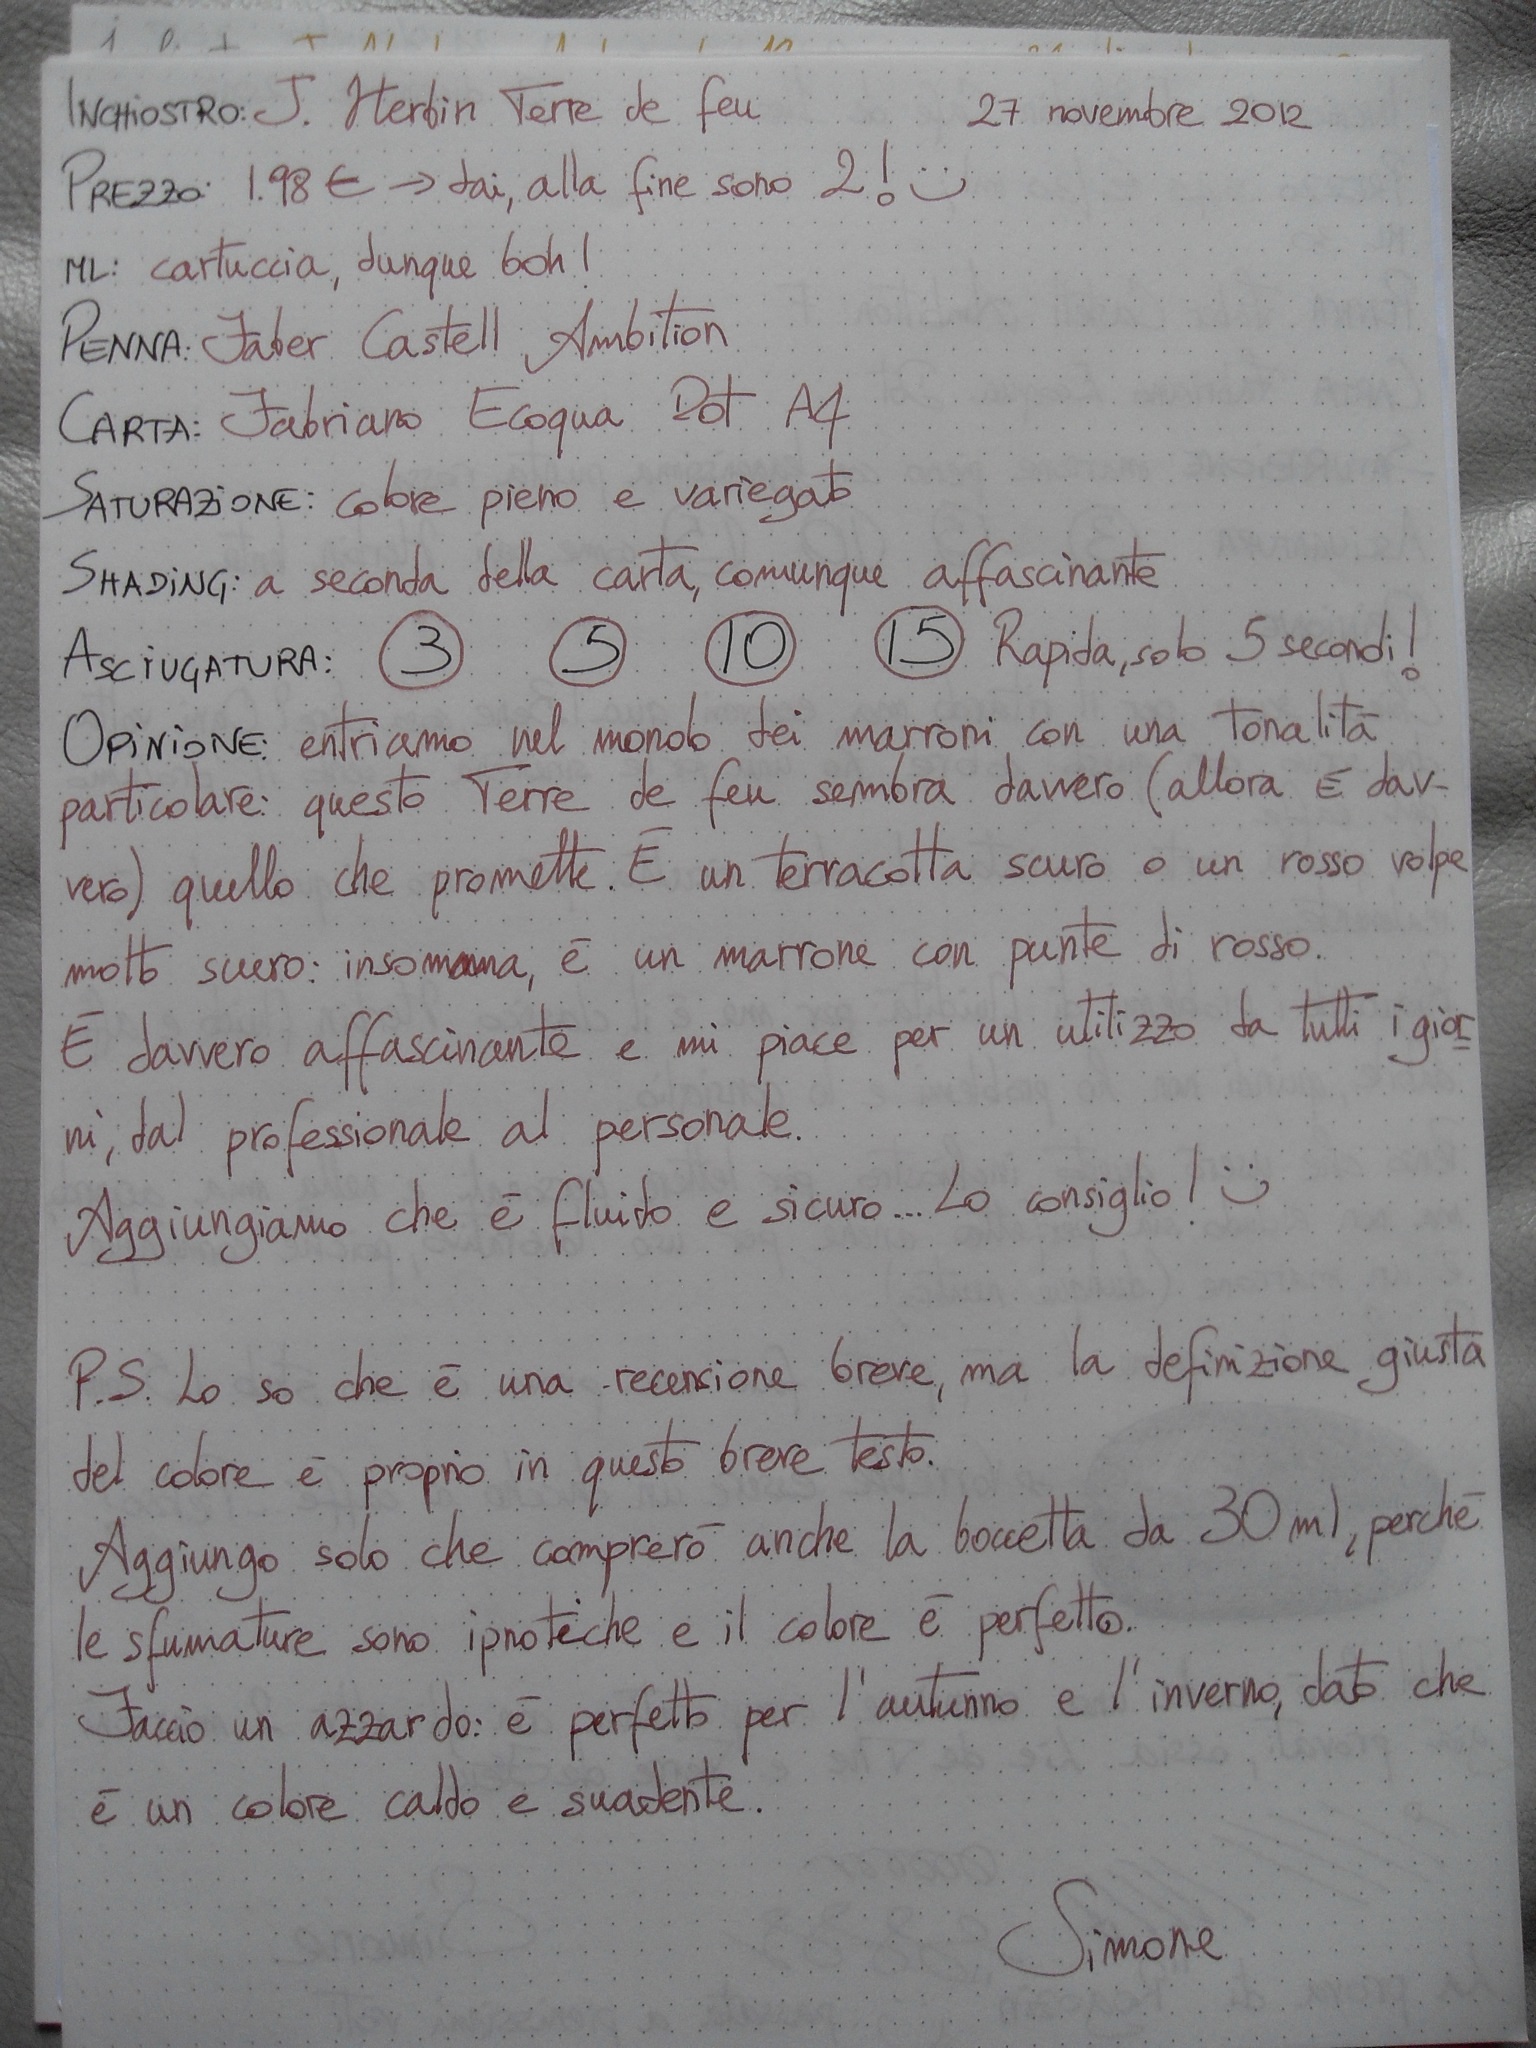 INCHIOSTRO: J. Herbin Terre de feu 27 novembre 2012
PREZZO: 1.98 € → dai, alla fine sono 2! :)
ML: cartuccia, dunque boh!
PENNA: Faber Castell Ambition
CARTA: Fabriano Ecoqua Dot A4
SATURAZIONE: colore pieno e variegato
SHADING: a seconda della carta, comunque affascinante
ASCIUGATURA: 3 5 10 15 Rapida, solo 5 secondi!
OPINIONE: entriamo nel mondo dei marroni con una tonalità
particolare: questo Terre de feu sembra davvero (allora È dav-
vero) quello che promette. È un terracotta scuro o un rosso volpe
molto scuro: insomma, è un marrone con punte di rosso.
È davvero affascinante e mi piace per un utilizzo da tutti i gior
ni, dal professionale al personale.
Aggiungiamo che è fluido e sicuro... Lo consiglio! :)
P.S. Lo so che è una recensione breve, ma la definizione giusta
del colore è proprio in questo breve testo.
Aggiungo solo che comprerò anche la boccetta da 30 ml, perché
le sfumature sono ipnotiche e il colore è perfetto.
Faccio un azzardo: è perfetto per l'autunno e l'inverno, dato che
è un colore caldo e suadente.
Simone